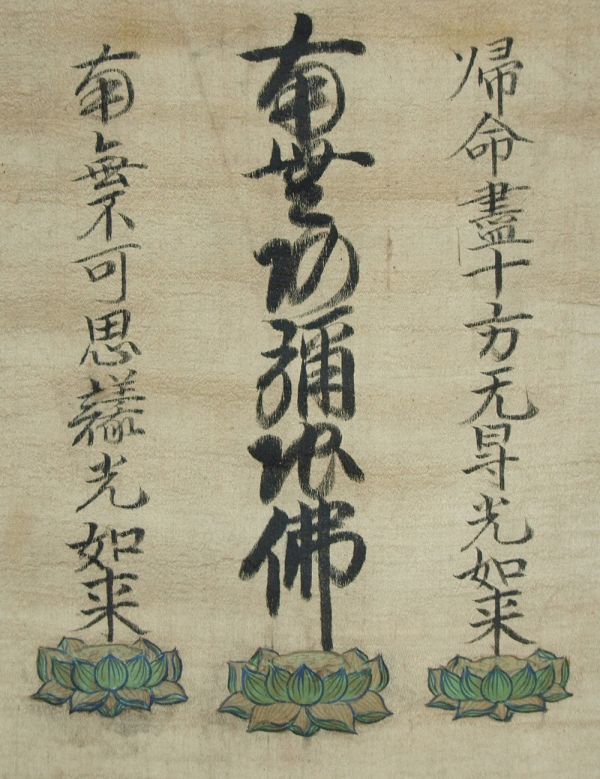 帰命盡十方无㝵光如来
南无阿彌陀佛
南無不可思議光如来